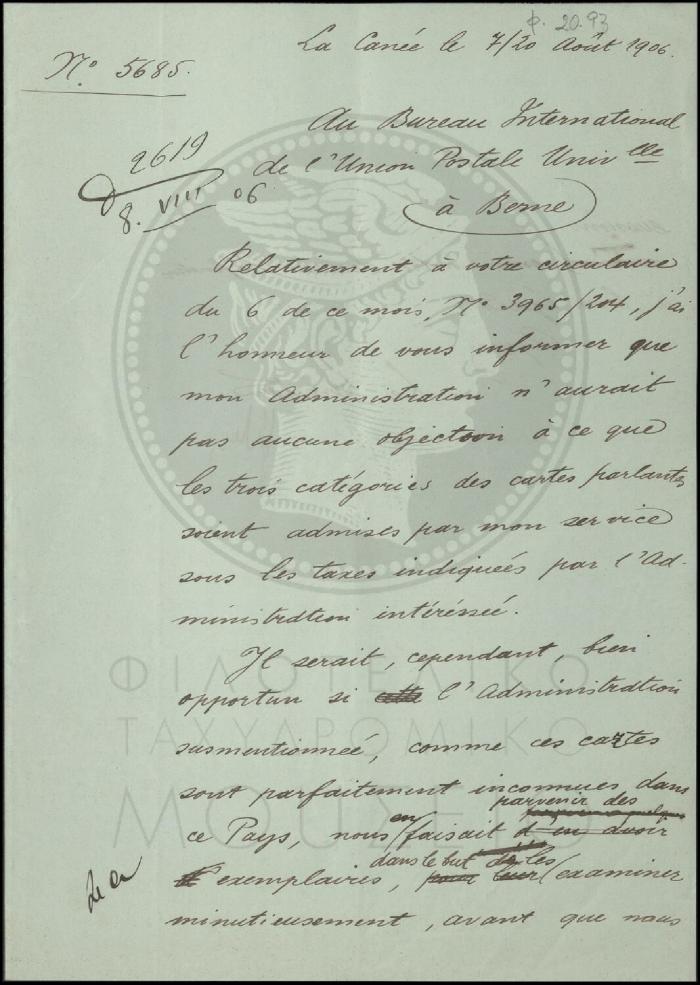 p. 20.93
La Canée le 7/20 Août 1906.
N.º 5685.
Au Bureau International
de l'Union Postale Univlle
à Berne
2619
8. VIII 06
Relativement à votre circulaire
du 6 de ce mois, Nº 3965/204, j'ai
l'honneur de vous informer que
mon Administration n'aurait
pas aucune objection à ce que
les trois catégories des cartes parlantes
soient admises par mon service
sous les taxes indiquées par l'Ad-
ministration intéréssée.
Il serait, cependant, bien
opportun si cette l'Administration
susmentionnée, comme ces cartes
sont parfaitement inconnues dans
parvenir des
ce Pays, nous en faisait d'en avoir
dans le but de les
exemplaires, pour leur examiner
minutieusement, avant que nous
ΦΙΛΟΤΕΛΙΚΟ
ΤΑΧΥΔΡΟΜΙΚΟ
ΜΟΥΣΕΙΟ